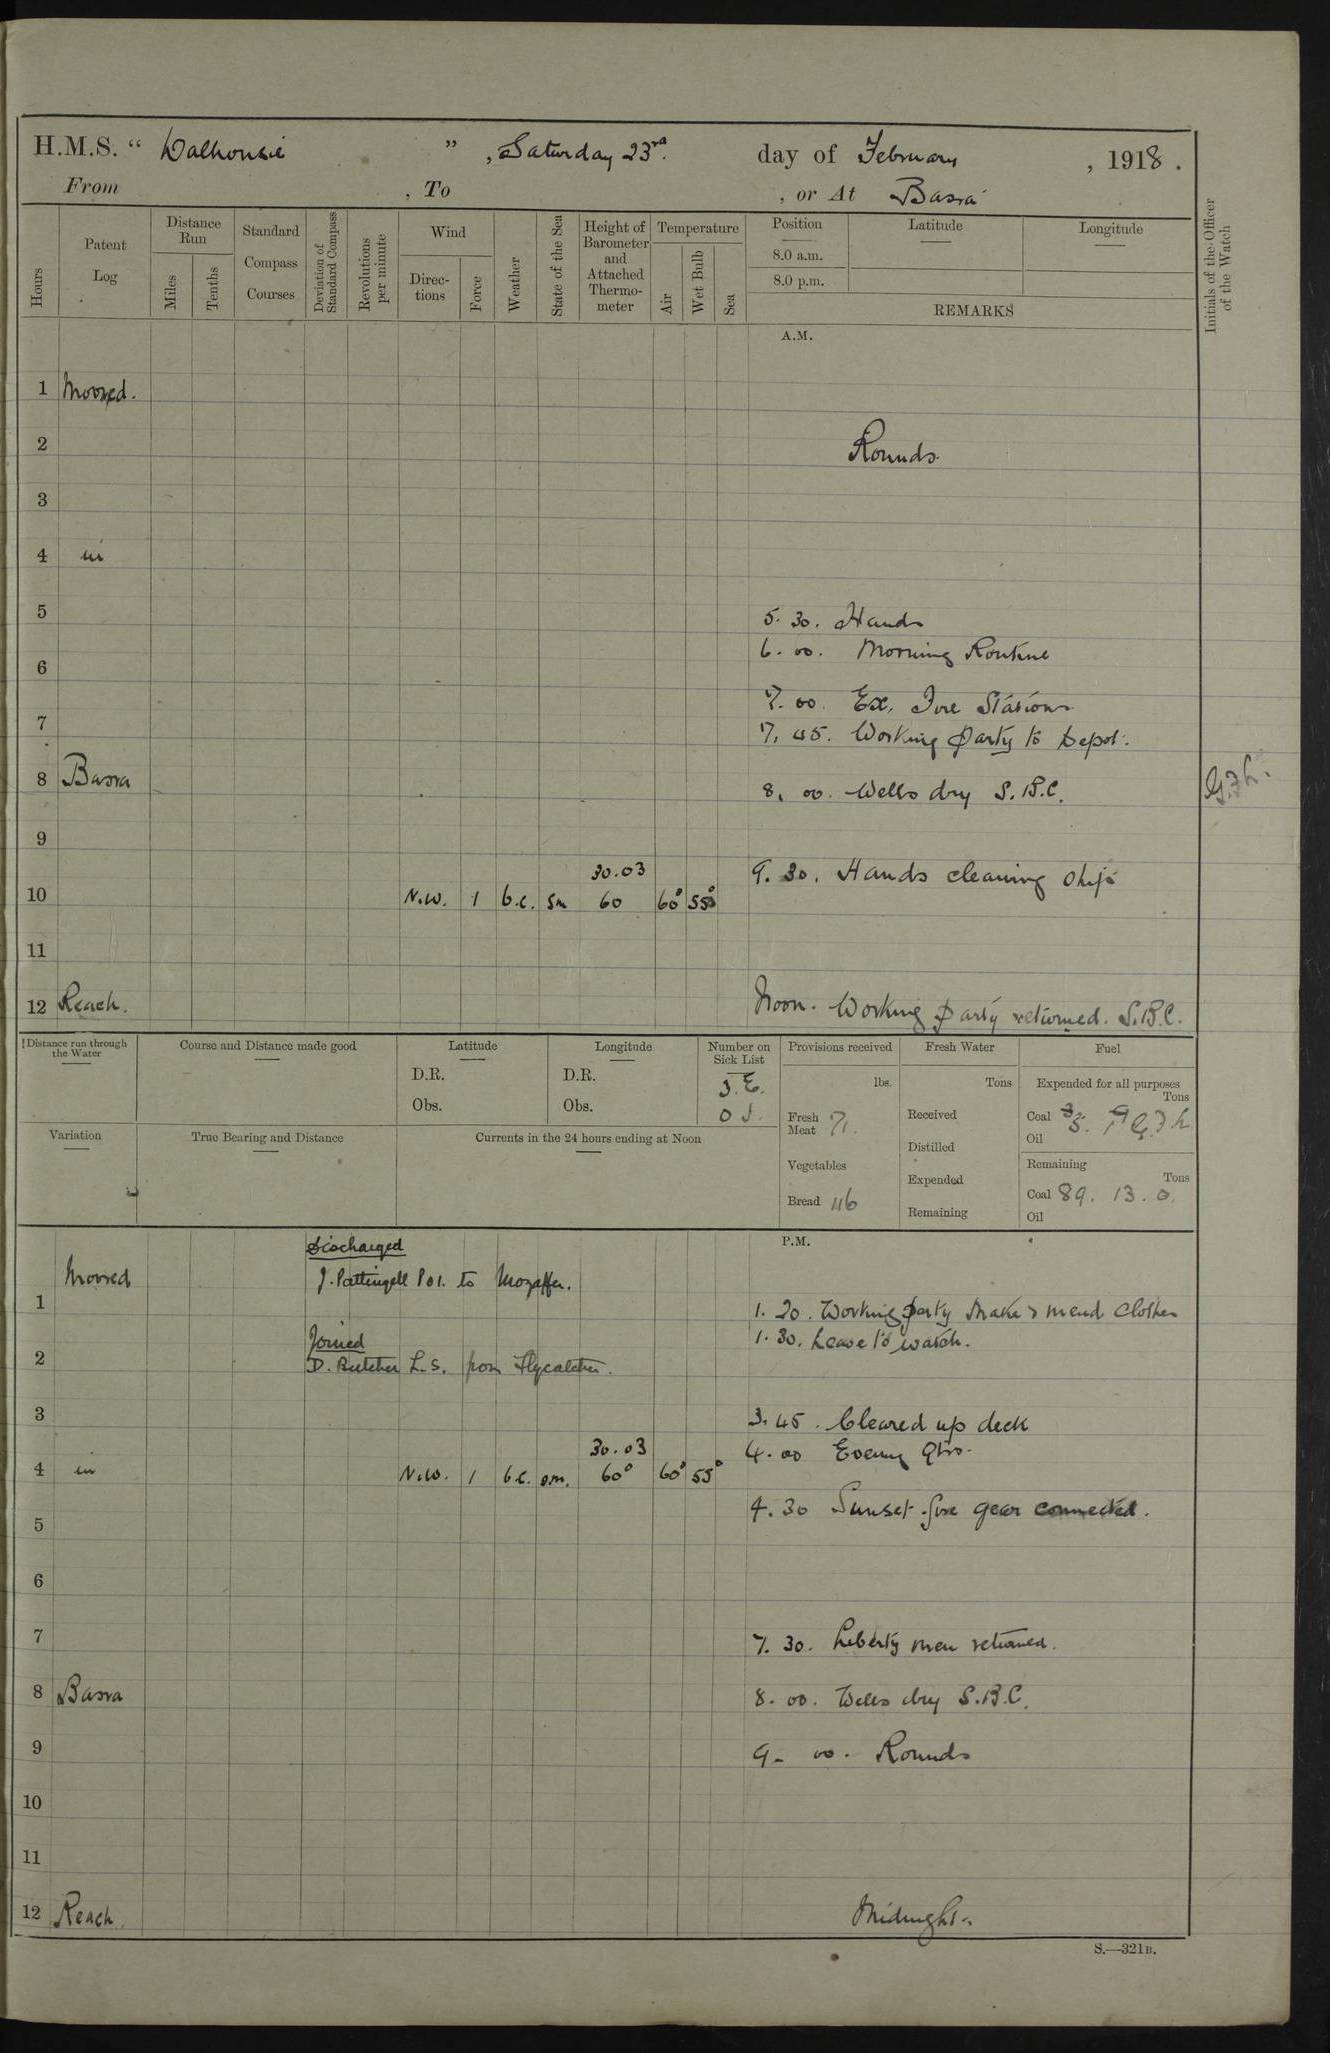 H.M.S. “ Dalhousie ” , Saturday 23rd. day of February , 1918 .
From , To , or At Basra
Hours
Patent Log
Distance Run
Miles
Tenths
Standard Compass Courses
Deviation of Standard Compass
Revolutions per minute
Wind
Directions
Force
Weather
State of the Sea
Height of Barometer and Attached Thermometer
Temperature
Air
Wet Bulb
Sea
Position
8.0 a.m.
8.0 p.m.
Latitude
Longitude
REMARKS
Initials of the Officer of the Watch
A.M.
1 Moored.
2 Rounds.
3
4 in
5 5. 30. Hands
6. 00. Morning Routine
6
7. 00. Ex. Fire Stations
7
7. 45. Working party to Depot.
8 Basra
8. 00. Wells dry S.B.C.
9
30.03 9. 30. Hands cleaning ship
10 N.W. 1 b.c. Sm 60 60° 55°
11
12 Reach. Noon. Working party returned. S.B.C.
Distance run through the Water
Course and Distance made good
Latitude
D.R.
Obs.
Longitude
D.R.
Obs.
Number on Sick List
3. E.
0 I.
Provisions received
lbs.
Fresh Meat 71.
Vegetables
Bread 46
Fresh Water
Tons
Received
Distilled
Expended
Remaining
Fuel
Expended for all purposes
Tons
Coal
Oil
Remaining
Tons
Coal 89. 13. 0.
Oil
Variation
True Bearing and Distance
Currents in the 24 hours ending at Noon
P.M.
Discharged
Moored J. Pattingell PO1. to Mozaffer.
1
1. 20. Working party make & mend clothes
Joined 1. 30. Leave to watch.
2 D. Butcher L.S. from Flycatcher.
3 3. 45. Cleared up deck
30.03 4. 00 Evening Qtrs.
4 in N.W. 1 b.c. sm. 60° 60° 55°
4. 30 Sunset fire gear connected.
5
6
7 7. 30. Liberty men returned.
8 Basra 8. 00. Wells dry S.B.C.
9 9. 00. Rounds
10
11
12 Reach. Midnight.
S.—321B.